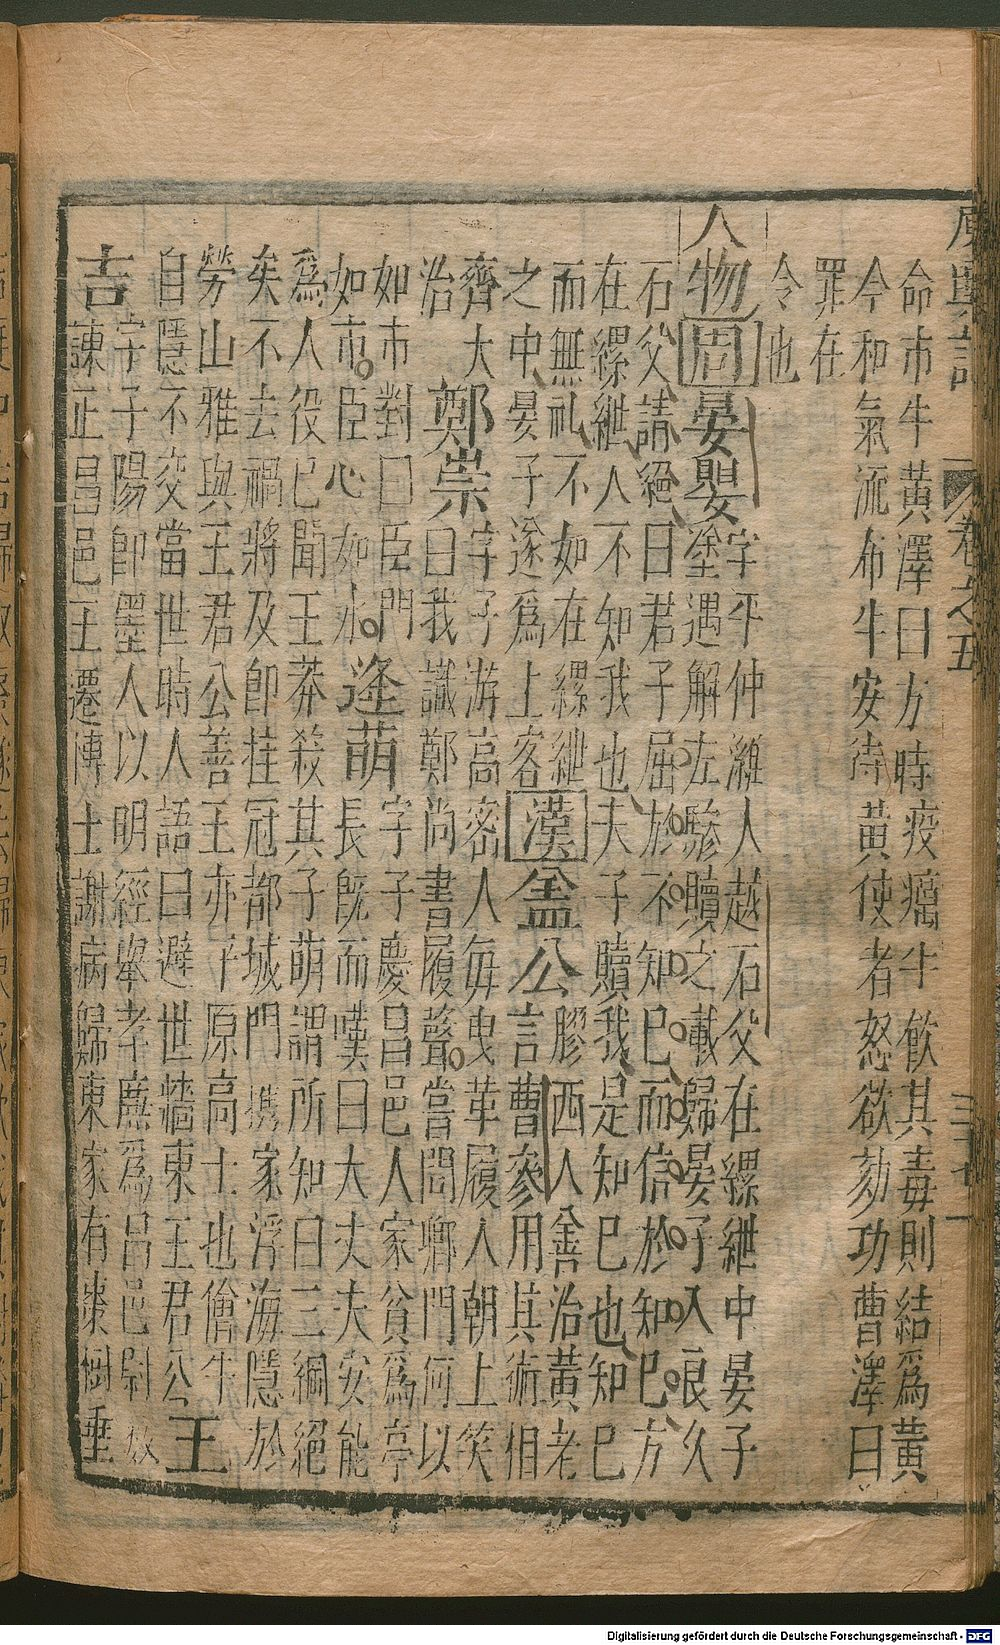 廣輿記
卷之五
三十七
命市牛黃澤曰方時疫癘牛飲其毒則結爲黃
今和氣流布牛安待黃使者怒欲劾功曹澤曰
罪在
令也
人物周晏嬰
字平仲濰人越石父在縲紲中晏子
塗遇解左驂贖之載歸晏子入良久
石父請絕曰君子屈於不知己而信於知己方
在縲紲人不知我也夫子贖我是知己也知己
而無礼不如在縲紲
之中晏子遂爲上客
漢盖公
膠西人善治黃老
言曹參用其術相
齊大
治
鄭崇
字子游高密人每曳革履入朝上笑
曰我識鄭尚書履聲嘗問卿門何以
如市對曰臣門
如市臣心如水
逄萌
字子慶昌邑人家貧爲亭
長既而嘆曰大丈夫安能
爲人役已聞王莽殺其子萌謂所知曰三綱絕
矣不去禍將及即挂冠都城門携家浮海隱於
勞山雅與王君公善王亦平原高士也儈牛
自隱不交當世時人語曰避世墻東王君公
王
吉
字子陽即墨人以明經舉孝廉爲呂邑尉
諫正昌邑王遷博士謝病歸東家有棗樹垂
Digitalisierung gefördert durch die Deutsche Forschungsgemeinschaft - DFG